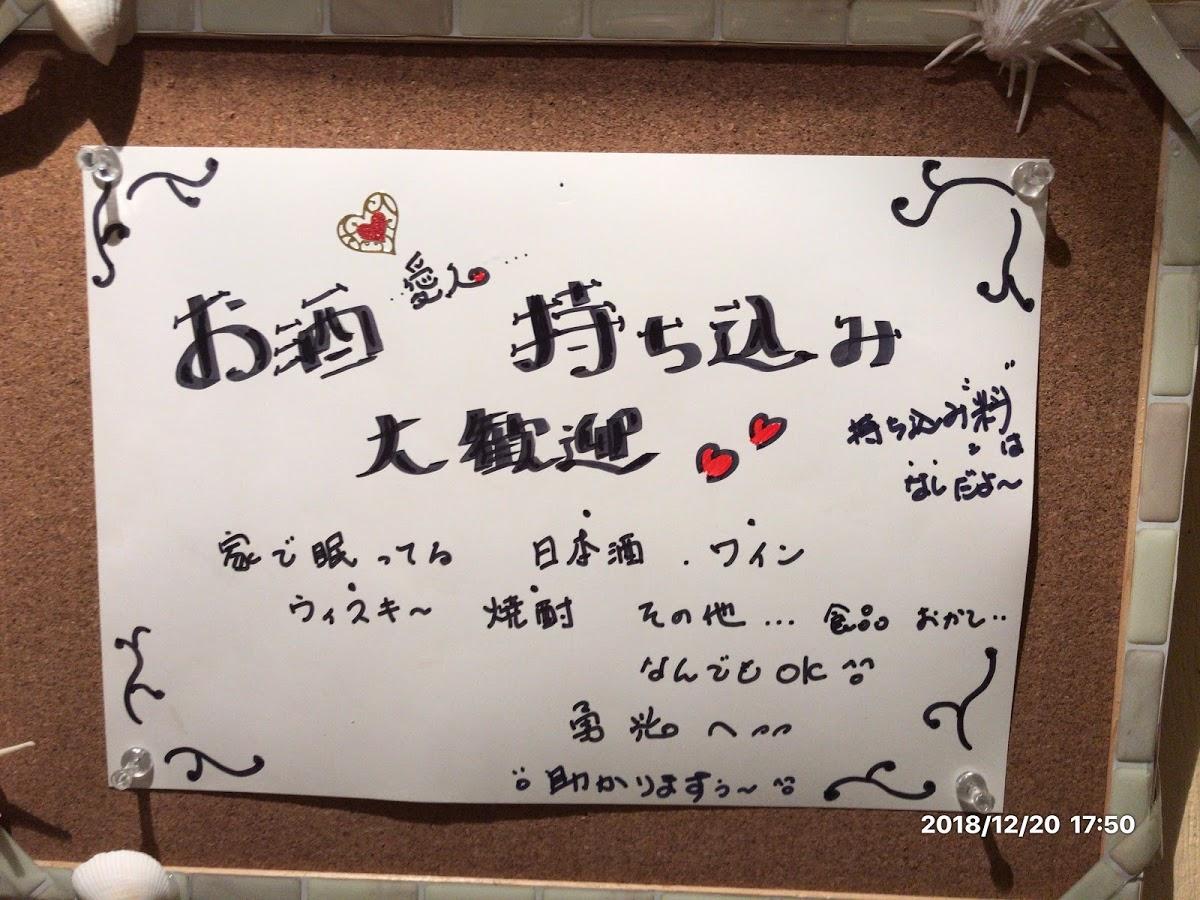 お酒 愛人 持ち込み
大歓迎
"持ち込み料"は
なしだよ〜
家で眠ってる 日本酒．ワイン
ウィスキ〜 焼酎 その他… 食品 おかし‥
なんでもOK^^
勇光へ
助かりますぅ〜
2018/12/20 17:50